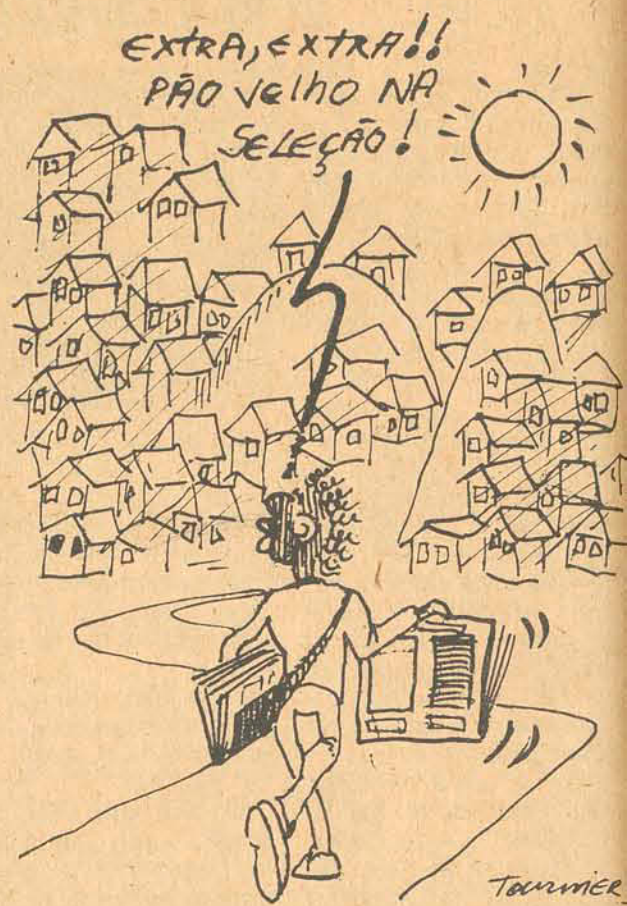 EXTRA, EXTRA!!
PÃO VELHO NA
SELEÇÃO!
TOURNIER